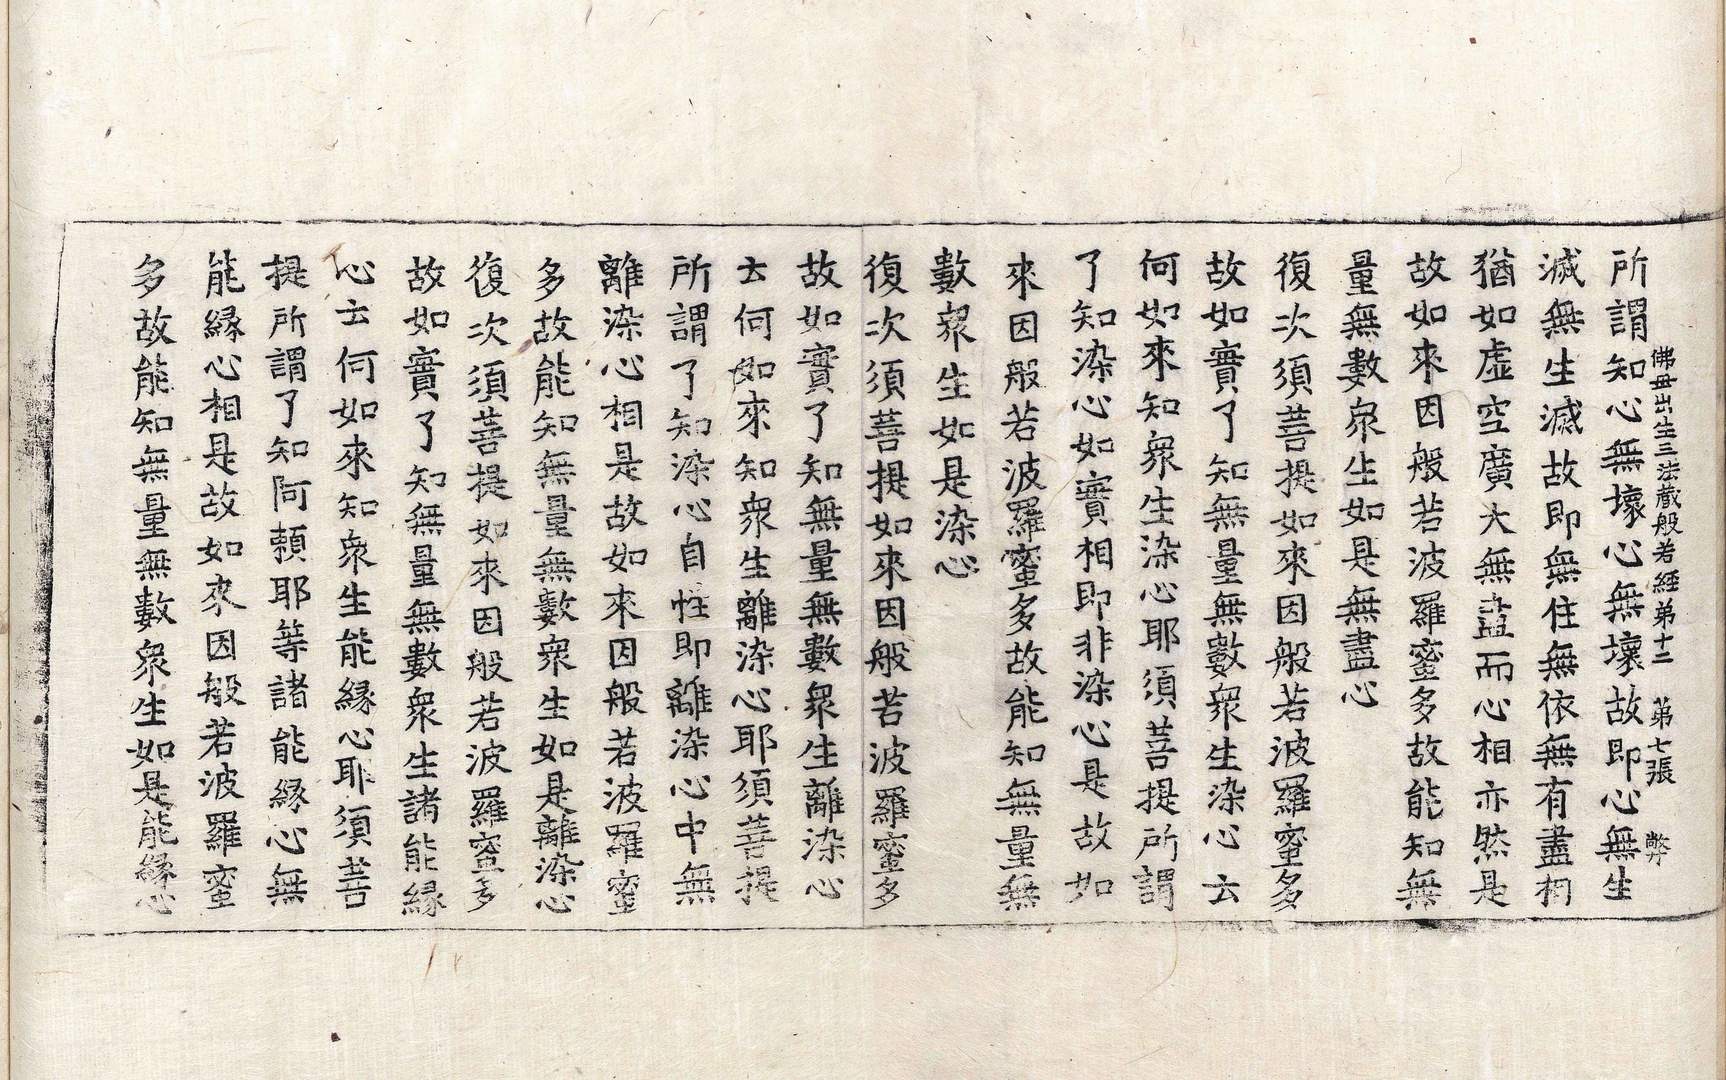 佛母出生三法藏般若經第十二　第七張　弊
所謂知心無壞心無壞故即心無生
滅無生滅故即無住無依無有盡相
猶如虛空廣大無盡而心相亦然是
故如來因般若波羅蜜多故能知無
量無數衆生如是無盡心
復次須菩提如來因般若波羅蜜多
故如實了知無量無數衆生染心云
何如來知衆生染心耶須菩提所謂
了知染心如實相即非染心是故如
來因般若波羅蜜多故能知無量無
數衆生如是染心
復次須菩提如來因般若波羅蜜多
故如實了知無量無數衆生離染心
云何如來知衆生離染心耶須菩提
所謂了知染心自性即離染心中無
離染心相是故如來因般若波羅蜜
多故能知無量無數衆生如是離染心
復次須菩提如來因般若波羅蜜多
故如實了知無量無數衆生諸能緣
心云何如來知衆生能緣心耶須菩
提所謂了知阿賴耶等諸能緣心無
能緣心相是故如來因般若波羅蜜
多故能知無量無數衆生如是能緣心